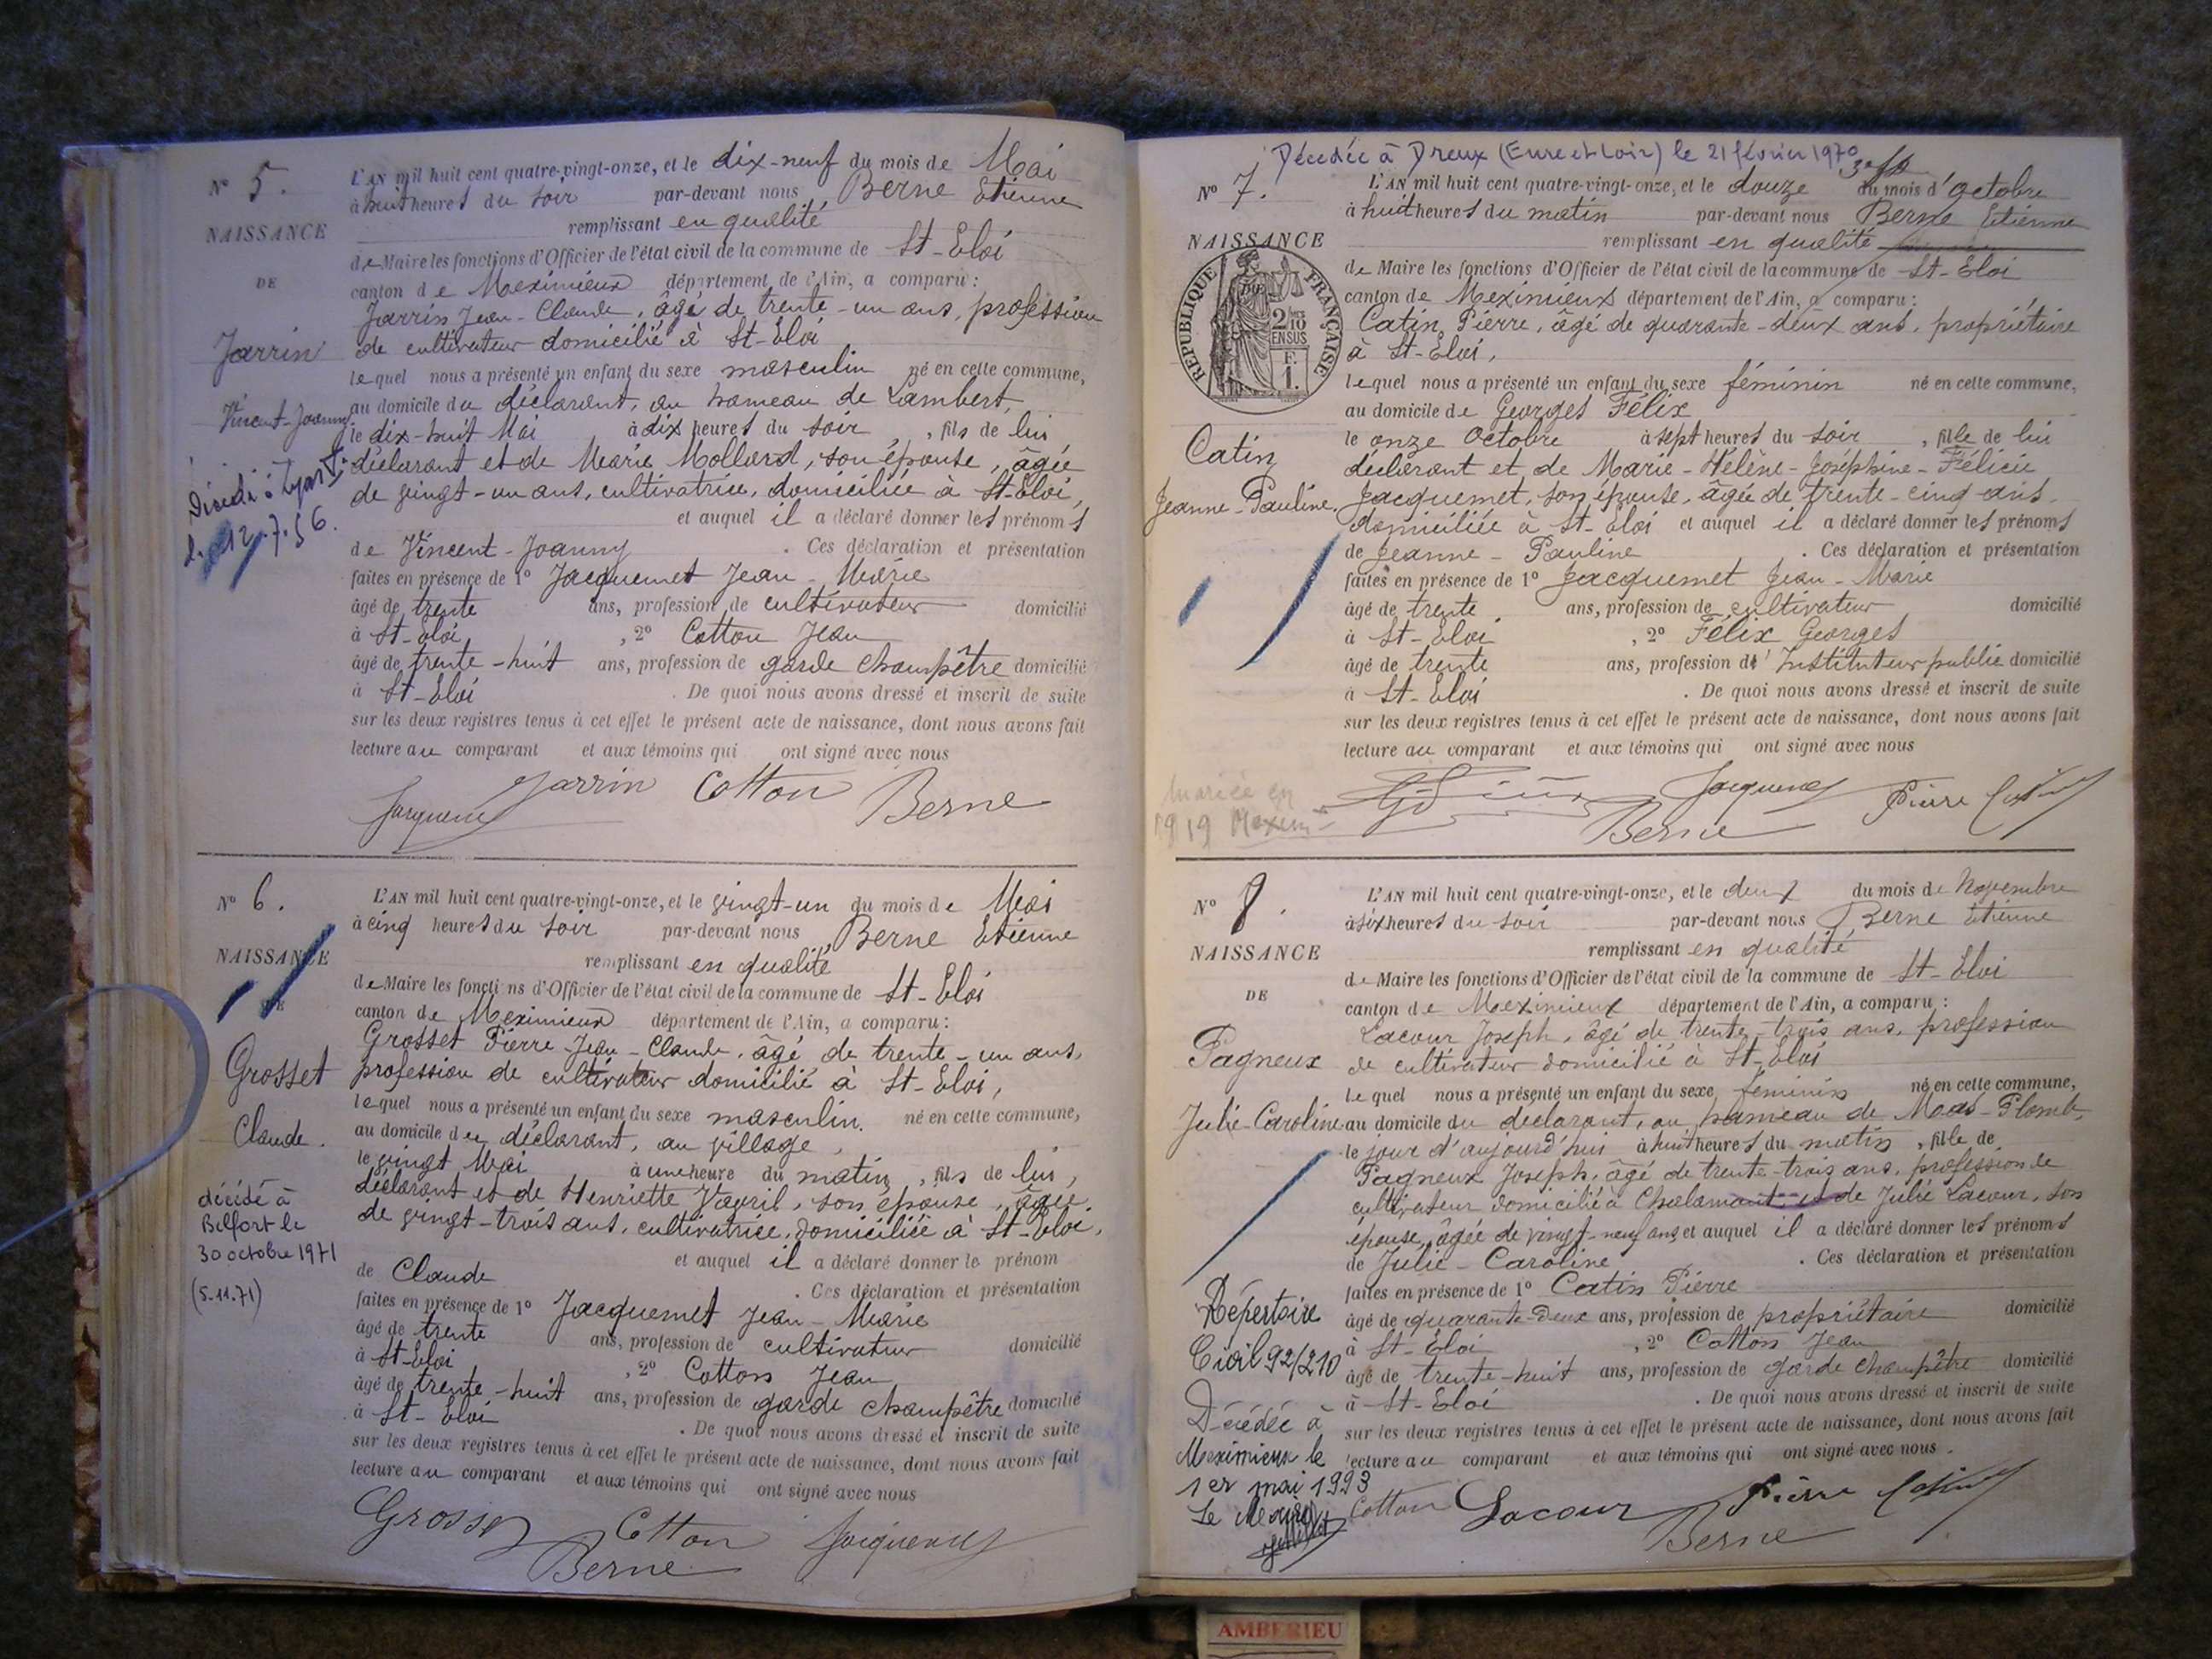 N° 5.
NAISSANCE
DE
Jarrin
Vincent-Joanny
Décédé à Lyon
le 12.7.56.
L'AN mil huit cent quatre-vingt-onze, et le dix-neuf du mois de Mai
à huit heures du soir par-devant nous Berne Etienne
remplissant en qualité
de Maire les fonctions d'Officier de l'état civil de la commune de St-Eloi
canton de Meximieux département de l'Ain, a comparu :
Jarrin Jean-Claude, âgé de trente-un ans, profession
de cultivateur domicilié à St-Eloi
lequel nous a présenté un enfant du sexe masculin né en cette commune,
au domicile du déclarant, au hameau de Lambert,
le dix-huit Mai à dix heures du soir, fils de lui
déclarant et de Marie Mollard, son épouse, âgée
de vingt-un ans, cultivatrice, domiciliée à St-Eloi,
et auquel il a déclaré donner les prénoms
de Vincent-Joanny. Ces déclaration et présentation
faites en présence de 1° Jacquemet Jean-Marie
âgé de trente ans, profession de cultivateur domicilié
à St-Eloi, 2° Cotton Jean
âgé de trente-huit ans, profession de garde champêtre domicilié
à St-Eloi. De quoi nous avons dressé et inscrit de suite
sur les deux registres tenus à cet effet le présent acte de naissance, dont nous avons fait
lecture au comparant et aux témoins qui ont signé avec nous
Jarrin Cotton Berne
Jacquemet
N° 6.
NAISSANCE
DE
Grosset
Claude.
décédé à
Belfort le
30 octobre 1971
(5.11.71)
L'AN mil huit cent quatre-vingt-onze, et le vingt-un du mois de Mai
à cinq heures du soir par-devant nous Berne Etienne
remplissant en qualité
de Maire les fonctions d'Officier de l'état civil de la commune de St-Eloi
canton de Meximieux département de l'Ain, a comparu :
Grosset Pierre-Jean-Claude, âgé de trente-un ans,
profession de cultivateur domicilié à St-Eloi,
lequel nous a présenté un enfant du sexe masculin. né en cette commune,
au domicile du déclarant, au village,
le vingt Mai à une heure du matin, fils de lui,
déclarant et de Henriette Vavril, son épouse, âgée
de vingt-trois ans, cultivatrice, domiciliée à St-Eloi,
et auquel il a déclaré donner le prénom
de Claude. Ces déclaration et présentation
faites en présence de 1° Jacquemet Jean-Marie
âgé de trente ans, profession de cultivateur domicilié
à St-Eloi, 2° Cotton Jean
âgé de trente-huit ans, profession de garde champêtre domicilié
à St-Eloi. De quoi nous avons dressé et inscrit de suite
sur les deux registres tenus à cet effet le présent acte de naissance, dont nous avons fait
lecture au comparant et aux témoins qui ont signé avec nous
Grosset Cotton Jacquemet
Berne
Décédée à Dreux (Eure et Loir) le 21 février 1970
N° 7.
NAISSANCE
RÉPUBLIQUE FRANÇAISE
2/10
EN SUS
F.
1.
Catin
Jeanne-Pauline.
mariée en
1919 Mexim
L'AN mil huit cent quatre-vingt-onze, et le douze du mois d'Octobre
à huit heures du matin par-devant nous Berne Etienne
remplissant en qualité
de Maire les fonctions d'Officier de l'état civil de la commune de St-Eloi
canton de Meximieux département de l'Ain, a comparu :
Catin Pierre, âgé de quarante-deux ans, propriétaire
à St-Eloi,
lequel nous a présenté un enfant du sexe féminin né en cette commune,
au domicile de Georges Félix
le onze Octobre à sept heures du soir, fille de lui
déclarant et de Marie-Hélène-Joséphine-Félicie
Jacquemet, son épouse, âgée de trente-cinq ans
domiciliée à St-Eloi et auquel il a déclaré donner les prénoms
de Jeanne-Pauline. Ces déclaration et présentation
faites en présence de 1° Jacquemet Jean-Marie
âgé de trente ans, profession de cultivateur domicilié
à St-Eloi, 2° Félix Georges
âgé de trente ans, profession d'Instituteur public domicilié
à St-Eloi. De quoi nous avons dressé et inscrit de suite
sur les deux registres tenus à cet effet le présent acte de naissance, dont nous avons fait
lecture au comparant et aux témoins qui ont signé avec nous
Jacquemet Pierre Catin
Berne
N° 8.
NAISSANCE
DE
Pagneux
Julie-Caroline
Répertoire
Civil 92/210
Décédée à
Meximieux le
1er mai 1993
Le Maire
L'AN mil huit cent quatre-vingt-onze, et le deux du mois de Novembre
à six heures du soir par-devant nous Berne Etienne
remplissant en qualité
de Maire les fonctions d'Officier de l'état civil de la commune de St-Eloi
canton de Meximieux département de l'Ain, a comparu :
Lacour Joseph, âgé de trente-trois ans, profession
de cultivateur domicilié à St-Eloi
lequel nous a présenté un enfant du sexe féminin né en cette commune,
au domicile du déclarant, au hameau de Mas-Plomb,
le jour d'aujourd'hui à huit heures du matin, fille de
Pagneux Joseph, âgé de trente-trois ans, profession de
cultivateur domicilié à Chalamont et de Julie Lacour, son
épouse, âgée de vingt-neuf ans et auquel il a déclaré donner les prénoms
de Julie-Caroline. Ces déclaration et présentation
faites en présence de 1° Catin Pierre
âgé de quarante-deux ans, profession de propriétaire domicilié
à St-Eloi, 2° Cotton Jean
âgé de trente-huit ans, profession de garde champêtre domicilié
à St-Eloi. De quoi nous avons dressé et inscrit de suite
sur les deux registres tenus à cet effet le présent acte de naissance, dont nous avons fait
lecture au comparant et aux témoins qui ont signé avec nous.
Cotton Lacour Pierre Catin
Berne
AMBERIEU